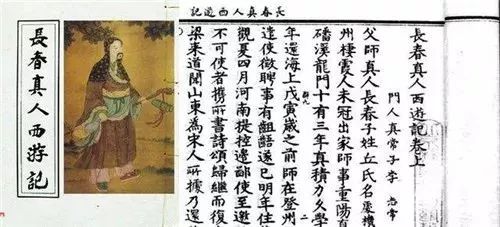 長春真人西游記
長春真人西遊記
長春真人西遊記卷上
門人真常子李志常
父師真人長春子姓丘氏名處機
州棲霞人未冠出家師事重陽真
磻溪龍門十有三年真積力久學
年還海上戊寅歲之前師在登州
二
遣使徵聘事有齟齬遂已明年住
觀夏四月河南提控邊鄙使至邀
不可使者攜所書詩頌歸繼而復
梁來道聞山東為宋人所據乃還